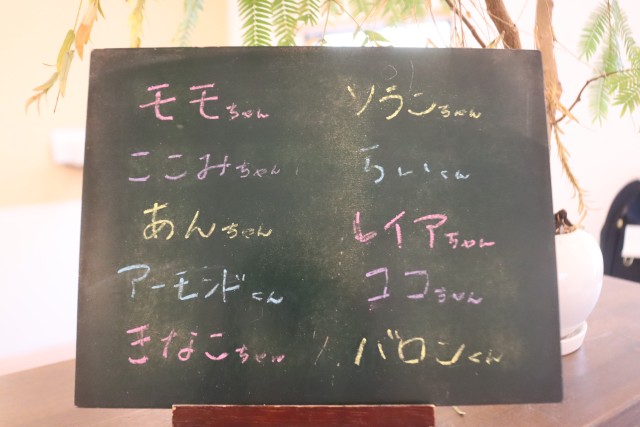 モモちゃん ソランちゃん
ここみちゃん らいくん
あんちゃん レイアちゃん
アーモンドくん ココちゃん
きなこちゃん バロンくん